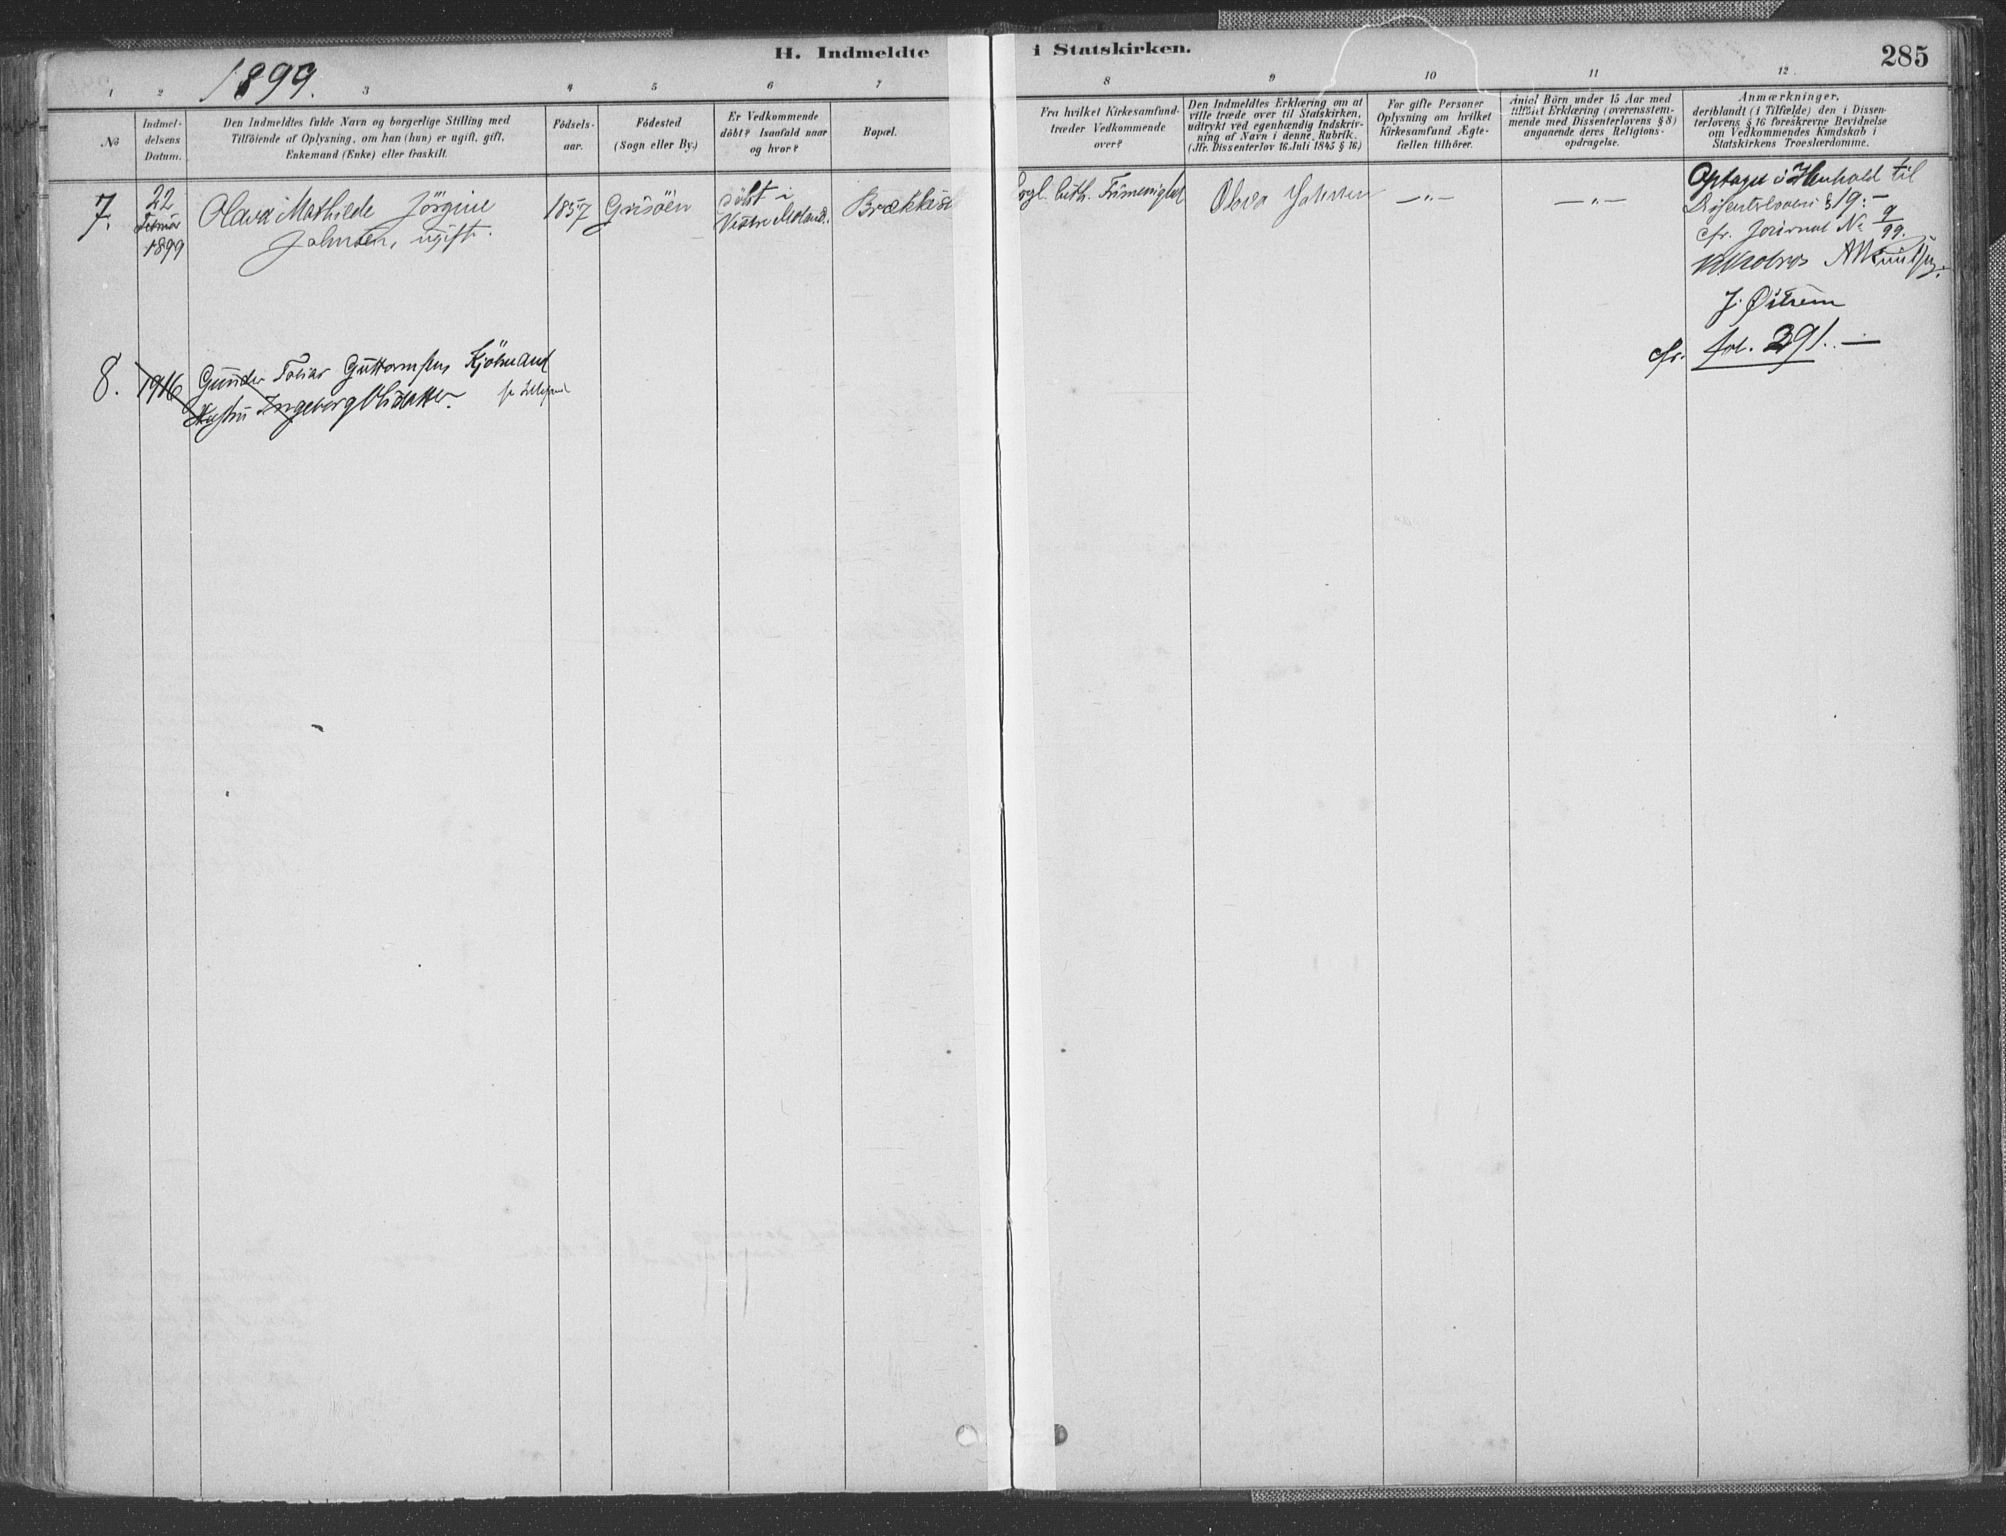 H. Indmeldte i Statskirken.
285
1899.
1 2 3 4 5 6 7 8 9 10 11 12.
No
Indmel-
delsens
Datum.
Den Indmeldtes fulde Navn og borgerlige Stilling med
Tilföiende af Oplysning, om han (hun) er ugift, gift,
Enkemand (Enke) eller fraskilt.
Födsels-
aar.
Födested
(Sogn eller By.)
Er Vedkommende
döbt? Isaafald naar
og hvor?
Bopæl.
Fra hvilket Kirkesamfund
træder Vedkommende
over?
Den Indmeldtes Erklæring om at
ville træde over til Statskirken,
udtrykt ved egenhændig Indskriv-
ning af Navn i denne Rubrik.
(Jfr. Dissenterlov 16. Juli 1845 § 16)
For gifte Personer
Oplysning om hvilket
Kirkesamfund Ægte-
fællen tilhörer.
Antal Börn under 15 Aar med
tilföiet Erklæring (overensstem-
mende med Dissenterlovens § 8)
angaaende deres Religions-
opdragelse.
Anmærkninger,
deriblandt (i Tilfælde) den i Dissen-
terlovens § 16 foreskrevne Bevidnelse
om Vedkommendes Kundskab i
Statskirkens Troeslærdomme.
7.
22
Februar
1899
Olava Mathilde Jörgine
Johnsen, ugift.
1857
Grisöen
Döbt i
Vestre Moland.
Brækkestø
evgl. luth. Frimenighed
Olava Johnsen
— " —
— " —
Optaget i Henhold til
Disenterloven § 19.-
cfr. Journal No 9/99.
J. Öitrem
8.
1916
Gunder Tobias Guttormsen Kjölner
Hustru Ingeborg
cfr. fol. 291. —